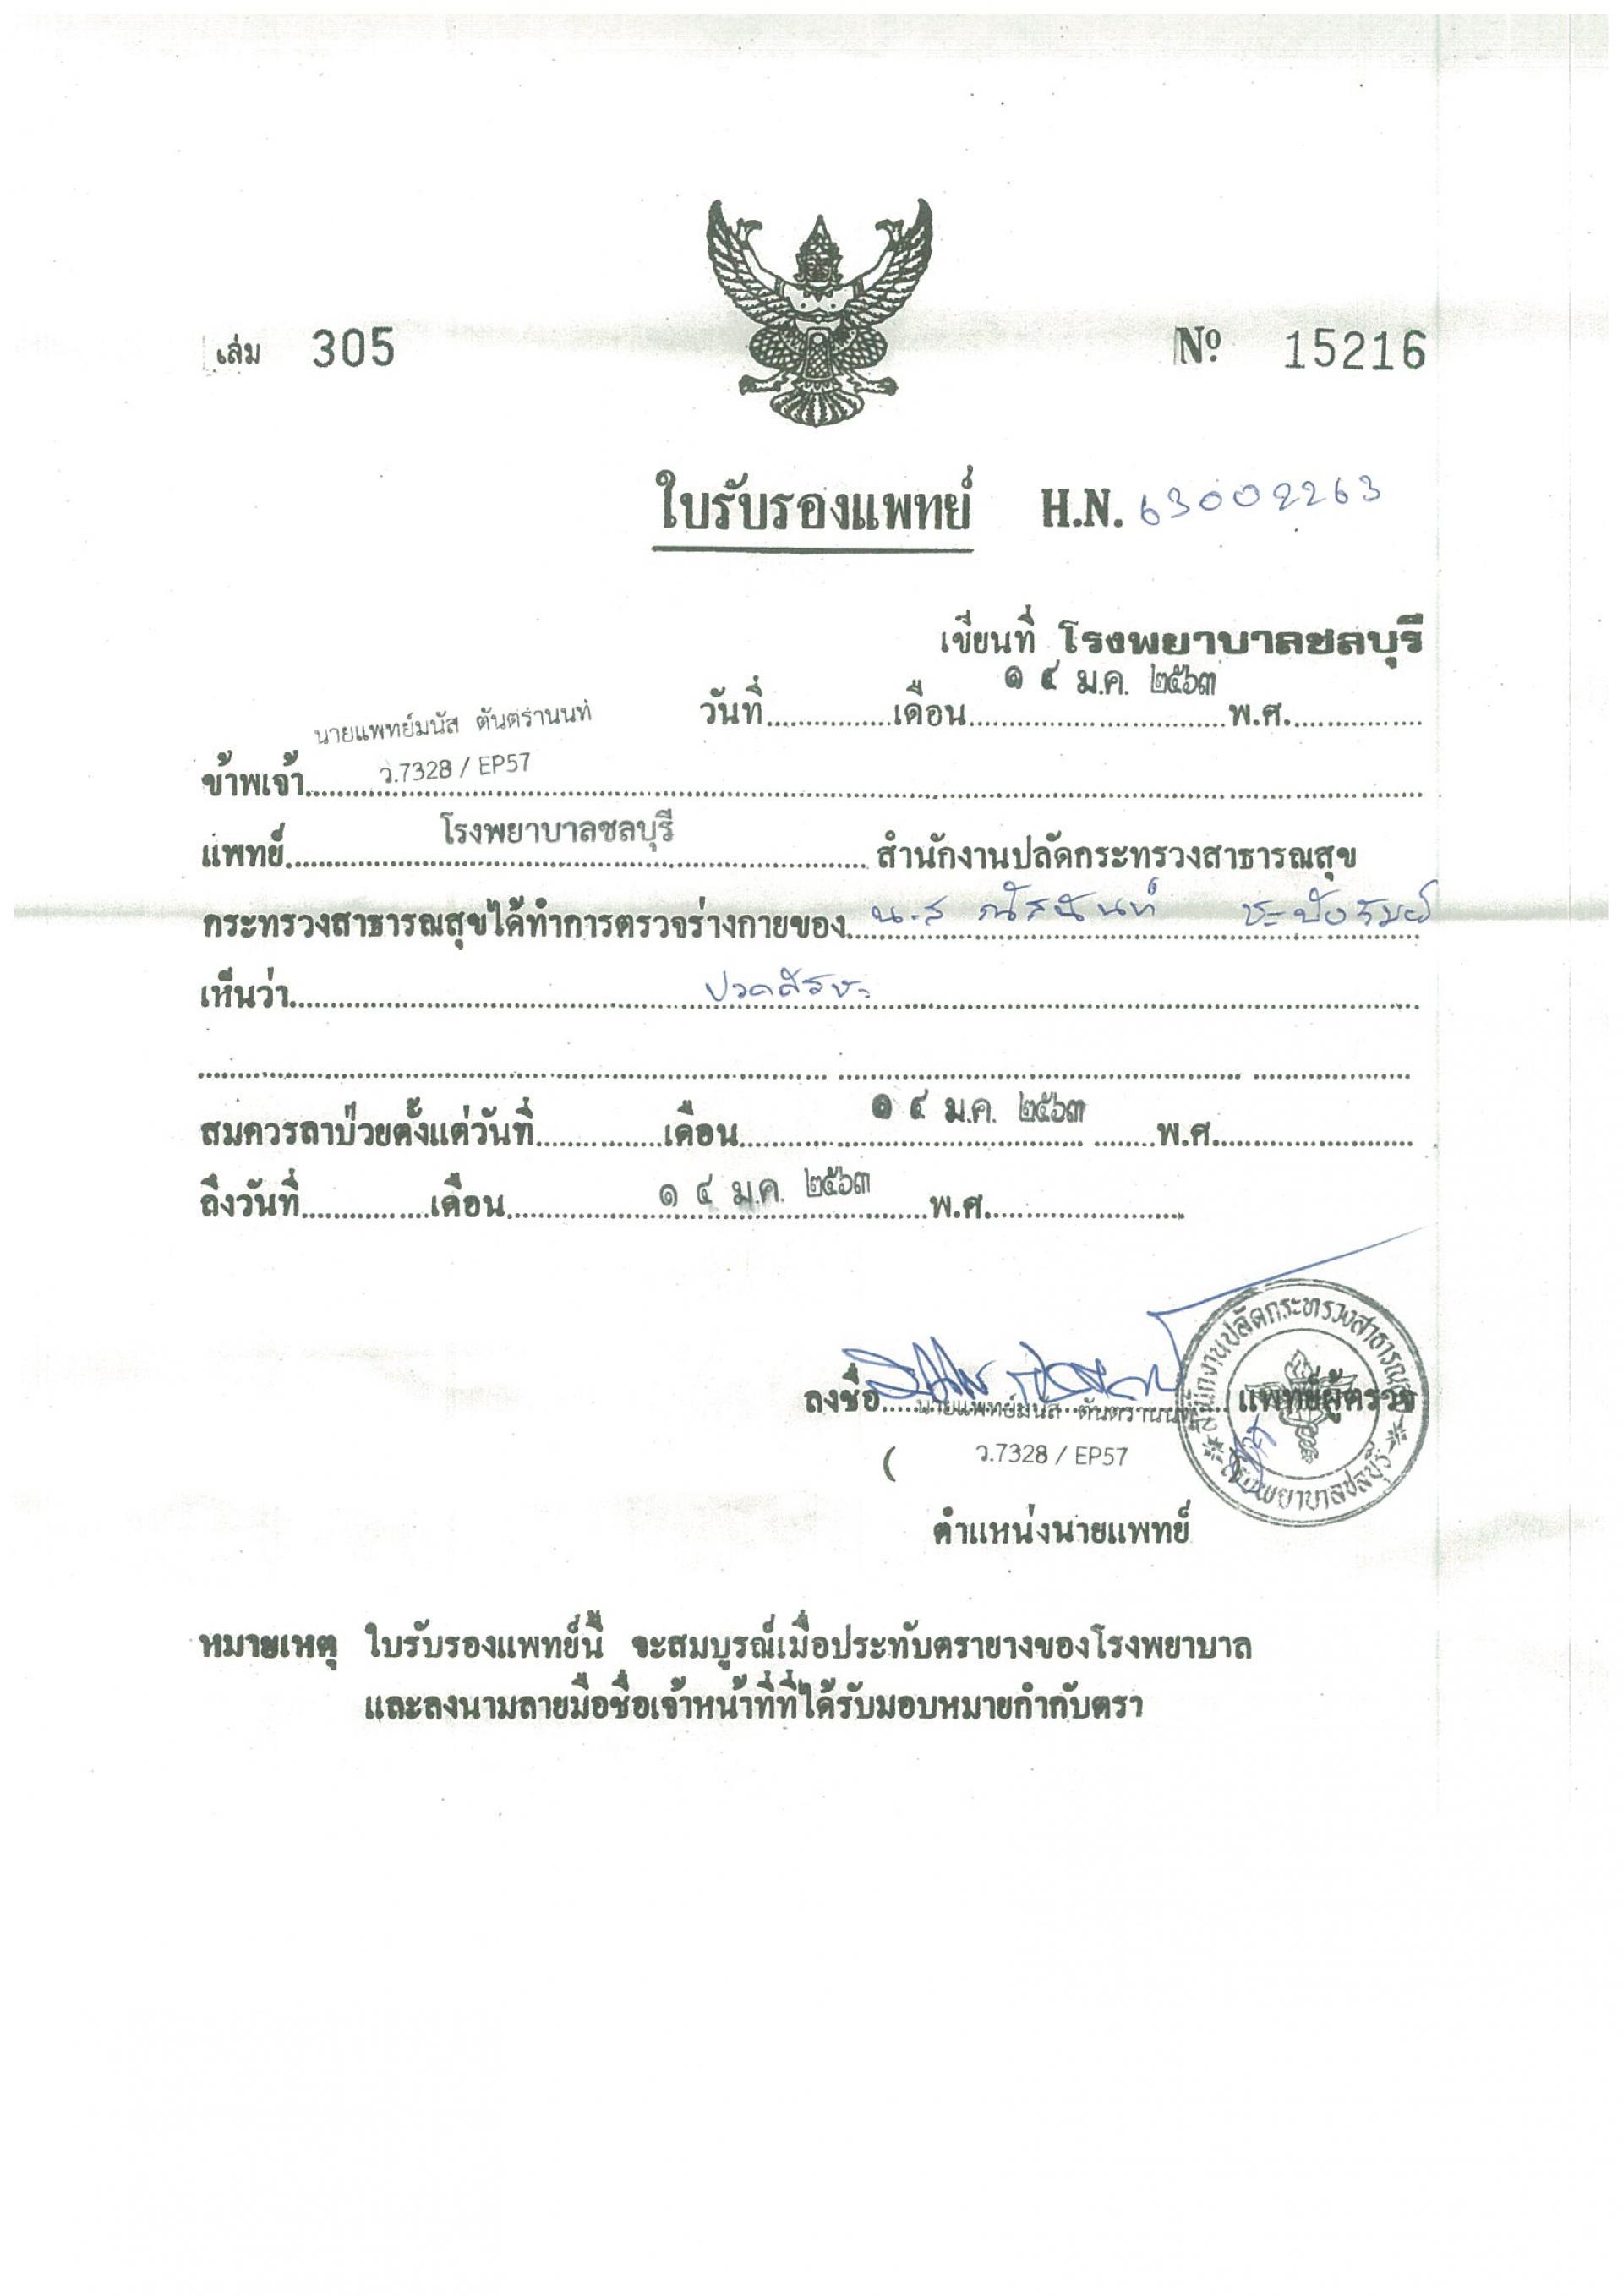 เล่ม 305 Nº 15216
ใบรับรองแพทย์ H.N. 63002263
เขียนที่ โรงพยาบาลชลบุรี
๑ ๔ ม.ค. ๒๕๖๓
วันที่..............เดือน..............................พ.ศ...............
นายแพทย์มนัส ตันตรานนท์
ว.7328 / EP57
ข้าพเจ้า
แพทย์ โรงพยาบาลชลบุรี สำนักงานปลัดกระทรวงสาธารณสุข
กระทรวงสาธารณสุขได้ทำการตรวจร่างกายของ น.ส
เห็นว่า ปวดศีรษะ
สมควรลาป่วยตั้งแต่วันที่..............เดือน ๑ ๔ ม.ค. ๒๕๖๓ พ.ศ.
ถึงวันที่..............เดือน ๑ ๔ ม.ค. ๒๕๖๓ พ.ศ.
ลงชื่อ นายแพทย์มนัส ตันตรานนท์ แพทย์ผู้ตรวจ
( ว.7328 / EP57
ตำแหน่งนายแพทย์
สำนักงานปลัดกระทรวงสาธารณสุข
โรงพยาบาลชลบุรี
หมายเหตุ ใบรับรองแพทย์นี้ จะสมบูรณ์เมื่อประทับตรายางของโรงพยาบาล
และลงนามลายมือชื่อเจ้าหน้าที่ที่ได้รับมอบหมายกำกับตรา